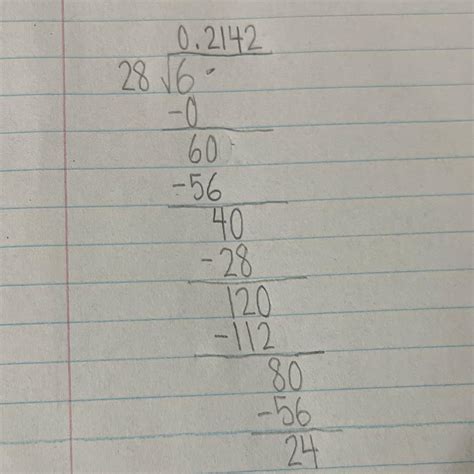 0.2142
28 √6.
-0
60
-56
40
-28
120
-112
80
-56
24